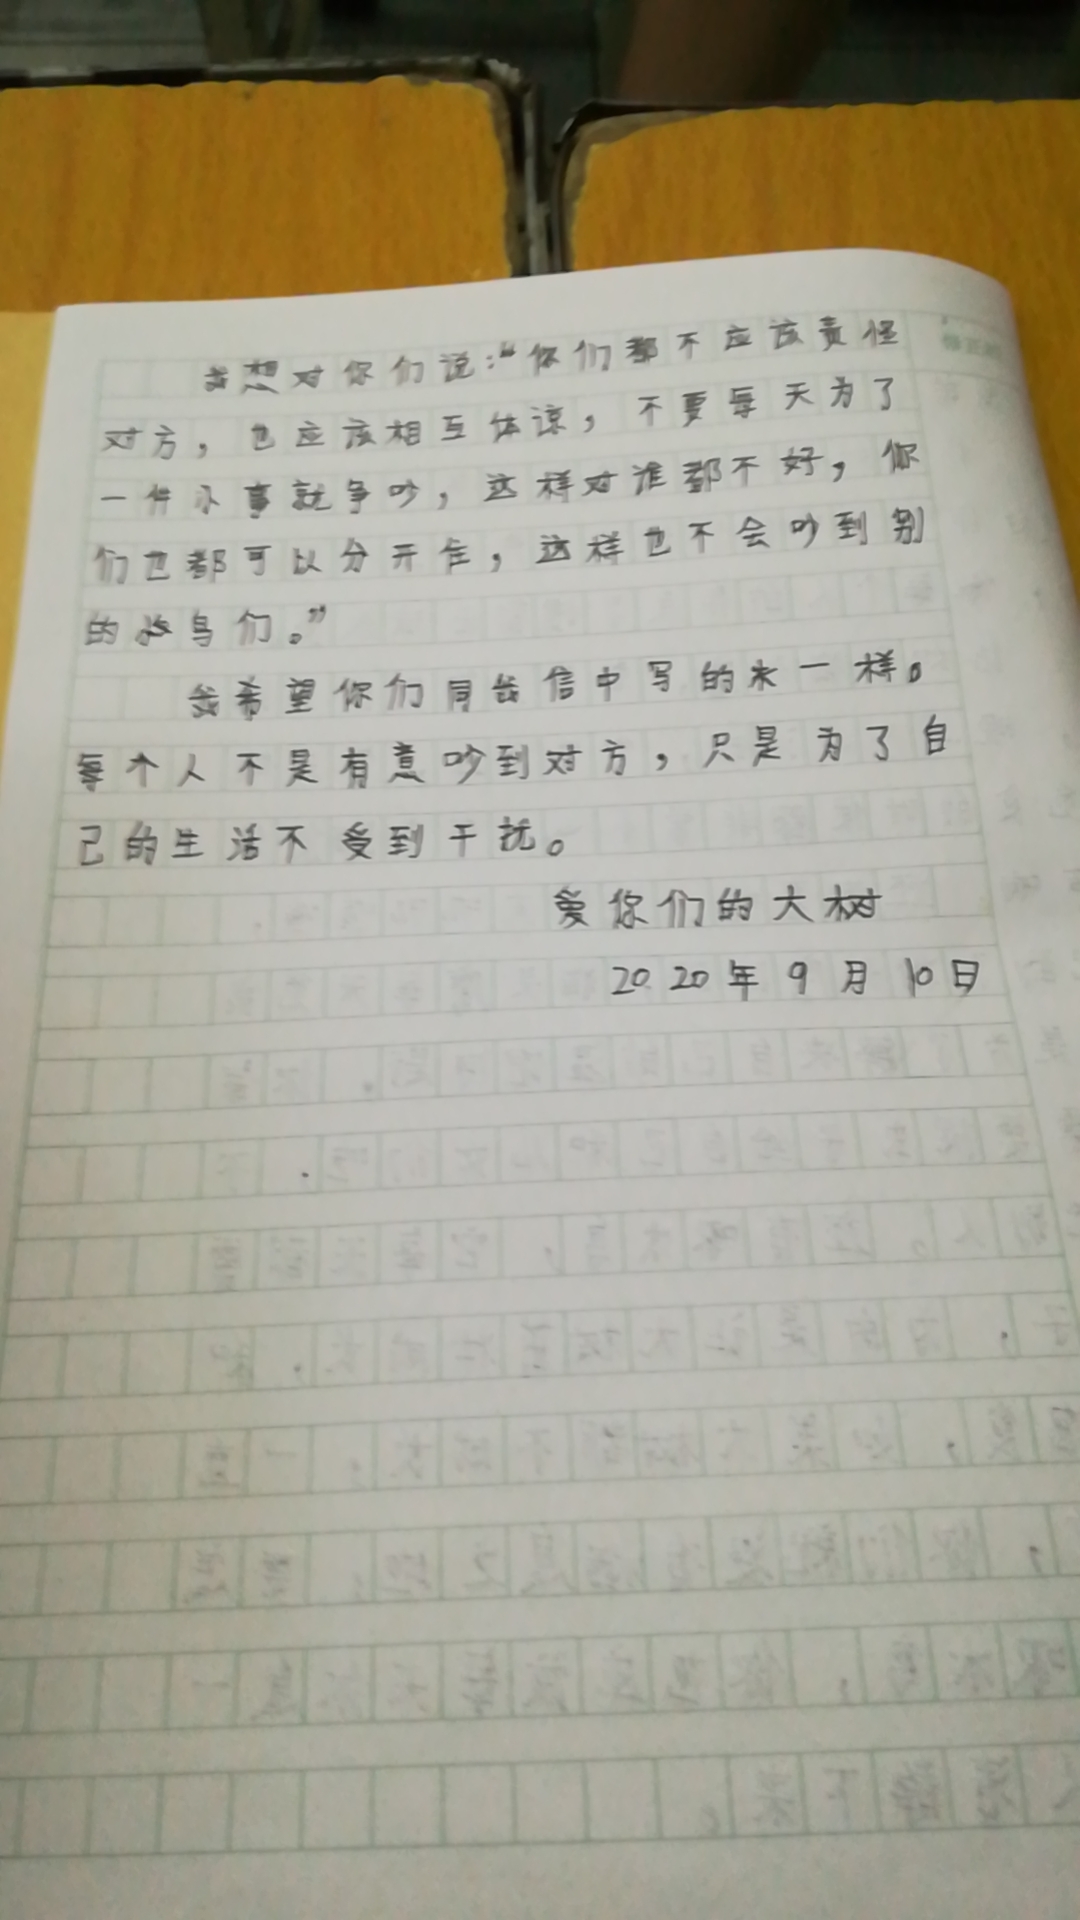 我想对你们说:“你们都不应该责怪
对方,也应该相互体谅,不要每天为了
一件小事就争吵,这样对谁都不好,你
们也都可以分开住,这样也不会吵到别
的 鸟们。”
我希望你们同我信中写的 一样。
每个人不是有意吵到对方,只是为了自
己的生活不受到干扰。
爱你们的大树
2020年9月10日